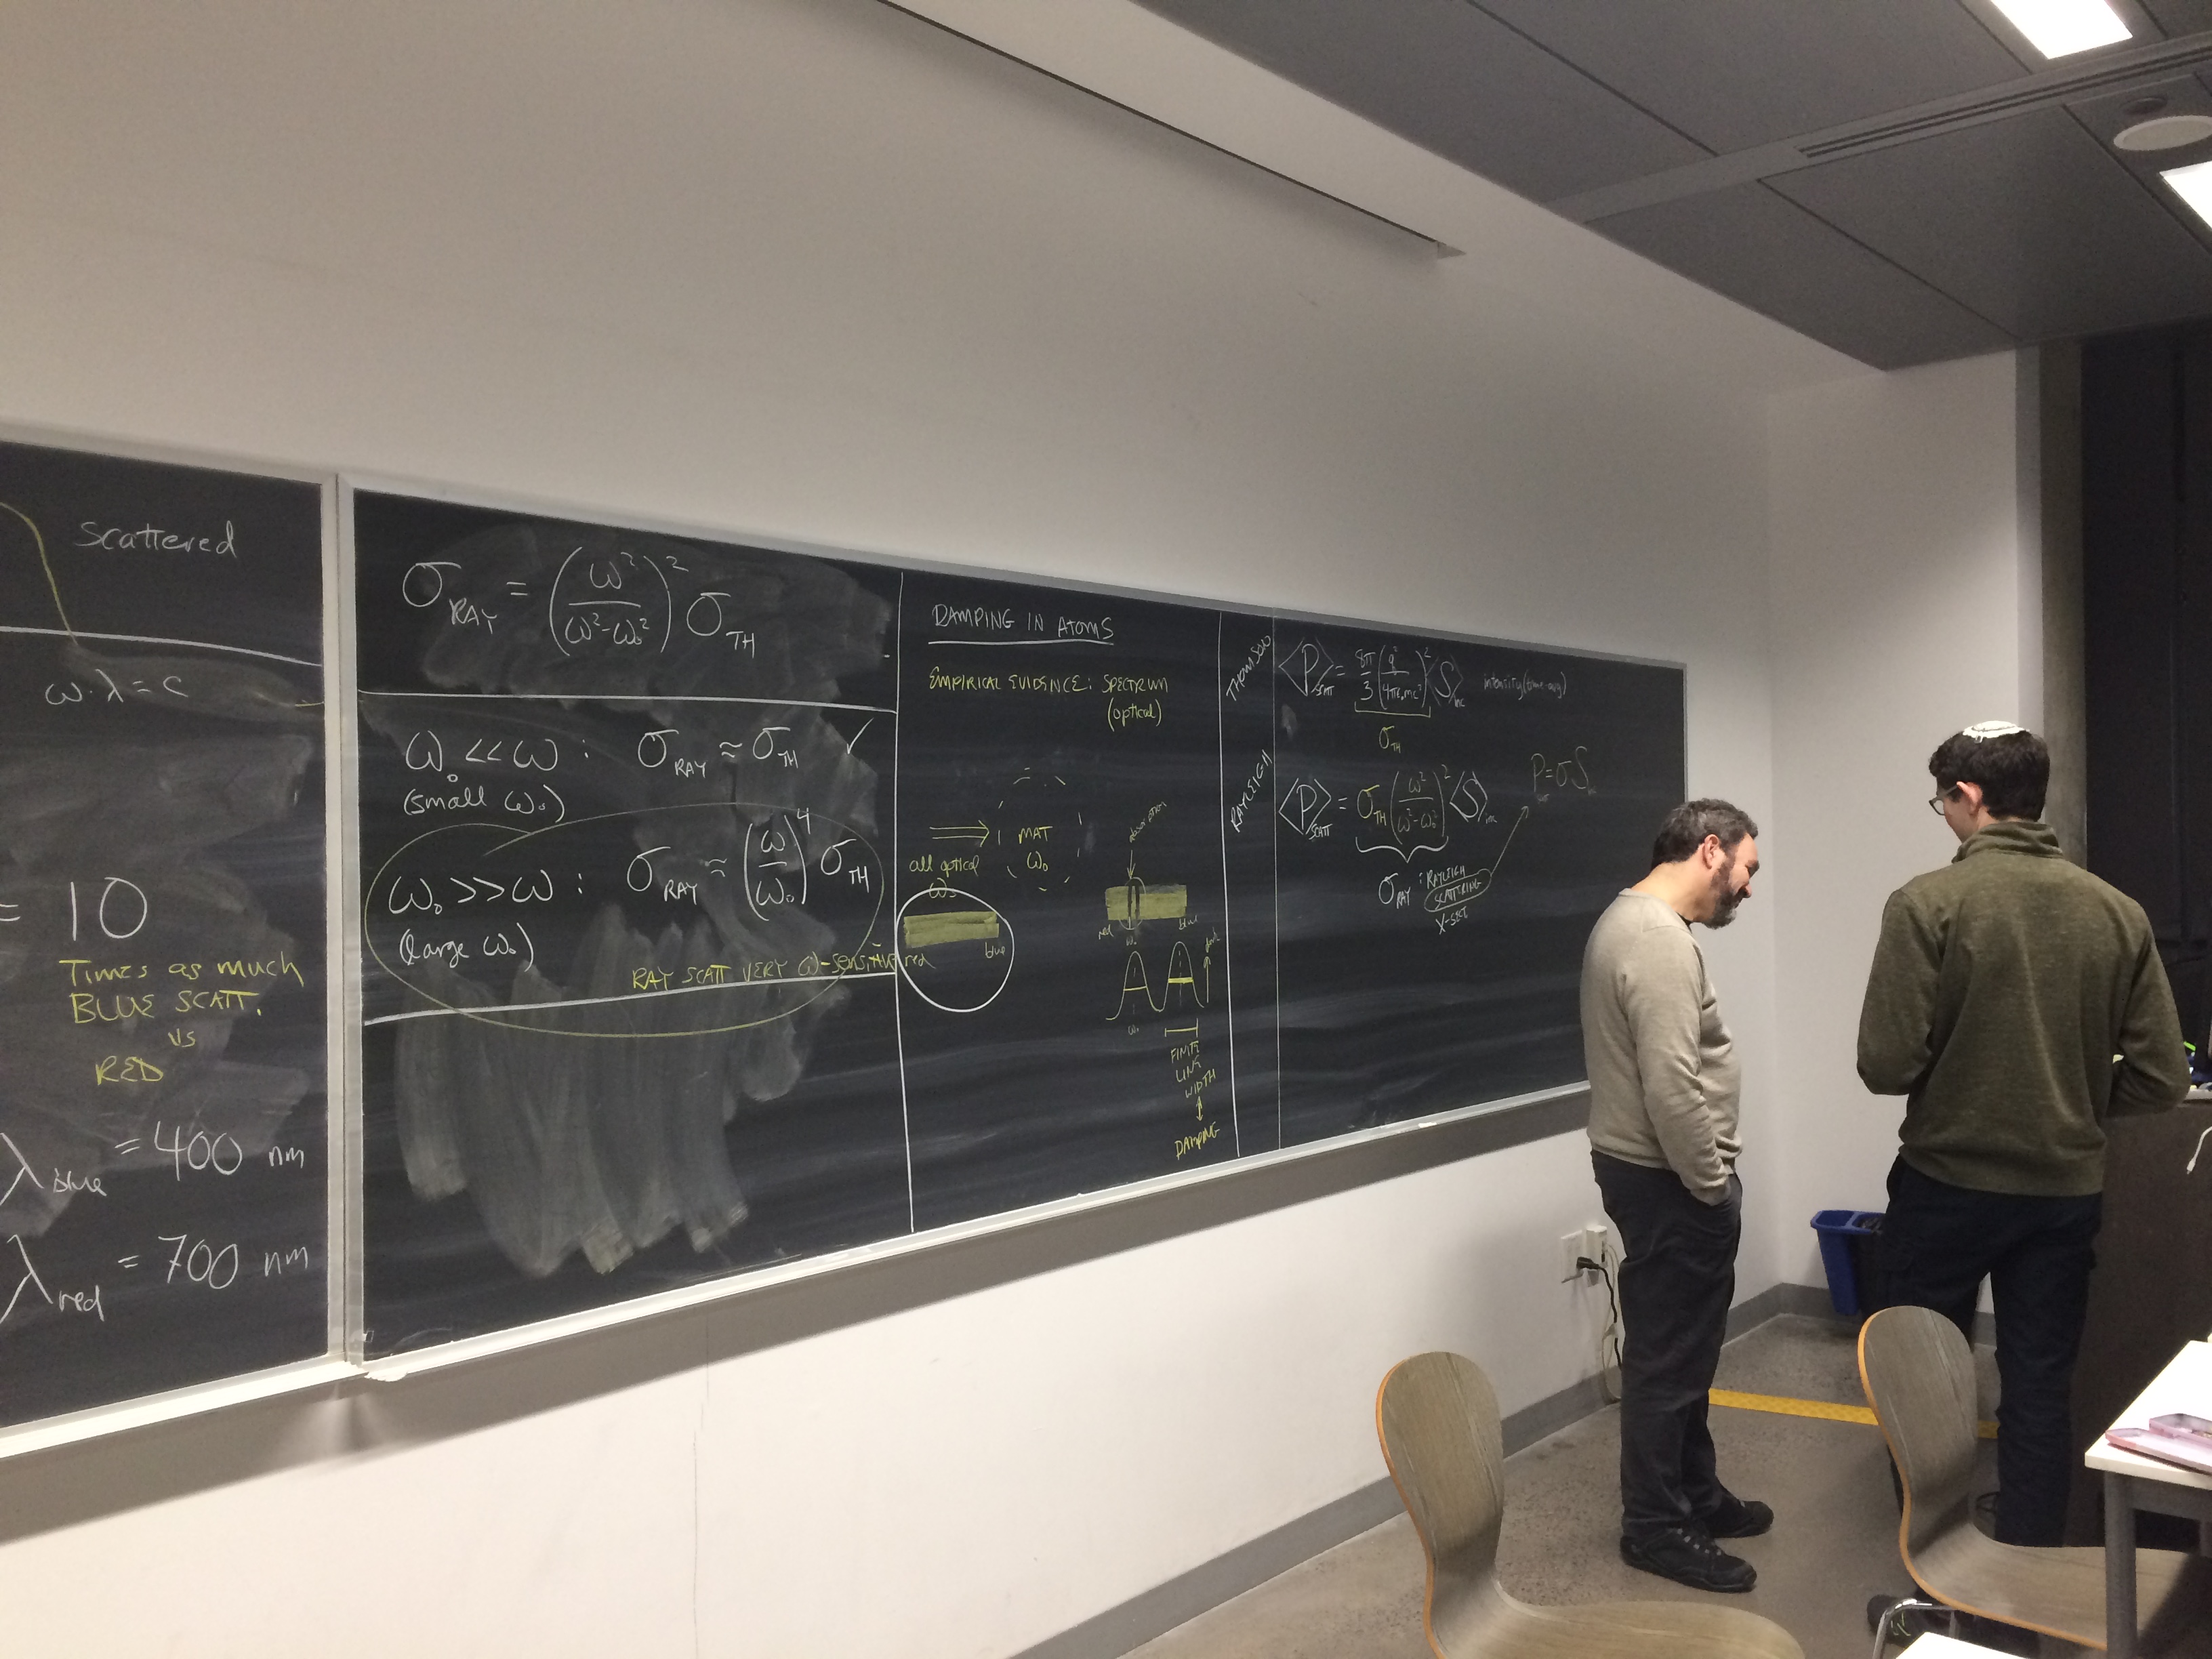 Scattered
ω·λ = c
= 10
Times as much
BLUE SCATT.
vs
RED
λ_blue = 400 nm
λ_red = 700 nm
σ_RAY = (ω²/(ω²-ω₀²))² σ_TH
ω₀ << ω : σ_RAY ≈ σ_TH ✓
(small ω₀)
ω₀ >> ω : σ_RAY ≈ (ω/ω₀)⁴ σ_TH
(large ω₀)
RAY SCATT VERY ω-SENSITIVE
DAMPING IN ATOMS
EMPIRICAL EVIDENCE: SPECTRUM
(optical)
⇒ MAT
ω₀
all optical
ω's
red blue
absorption
red ω₀ blue
dark
ω₀
FINITE
LINE
WIDTH
↕
DAMPING
THOMSON
⟨P⟩_SCATT = 8π/3 (q²/4πε₀mc²)² ⟨S⟩_inc intensity (time-avg)
σ_TH
RAYLEIGH
⟨P⟩_SCATT = σ_TH (ω²/(ω²-ω₀²))² ⟨S⟩_inc
P = σS
σ_RAY : RAYLEIGH
SCATTERING
X-SECT